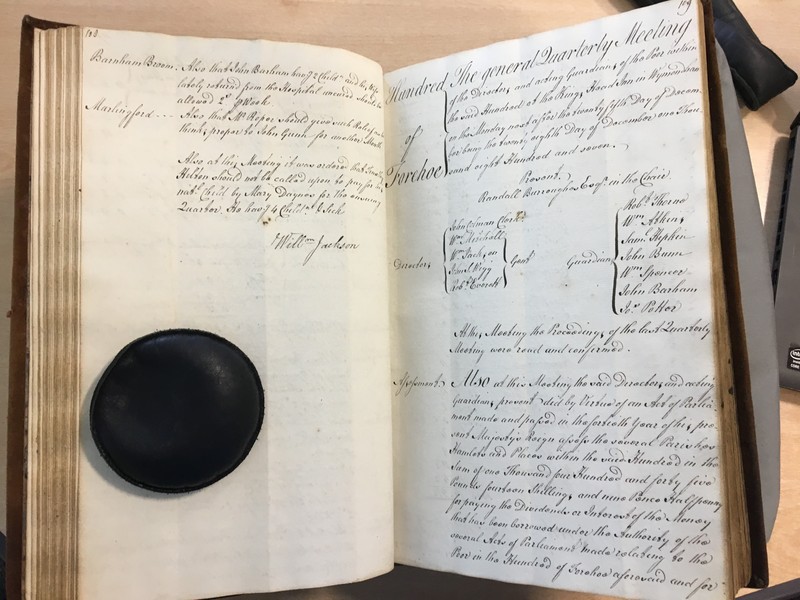 188
Barnham Broom. Also that John Barham having 2 Childn. and his Wife
lately returned from the Hospital uncured should be
allowed 2s. pr Week.
Marlingford Also that Mr Roper should give such Relief as he
thinks proper to John Gunn for another Month
Also at this Meeting it was ordered that
should not be called upon to pay for a
natl. Child by Mary Daynes for the ensuing
Quarter, he having 4 Childn. & Sick
Willm Jackson
189
Hundred of Forehoe
The general Quarterly Meeting
of the Directors and acting Guardians of the Poor within
the said Hundred at the Kings Head Inn in Wymondham
on the Monday next after the twenty fifth Day of Decem-
ber being the twenty eighth Day of December one Thou-
sand eight Hundred and seven.
Present.
Randall Burroughes Esqr. in the Chair
Directors
John Inman Clerk
Wm Jackson
Robt. Everett
Gent
Guardians
Robt. Thorne
Wm Atkins
Saml. Stephen
John Bunn
Wm Spencer
John Barham
Jas. Potter
At this Meeting the Proceedings of the last Quarterly
Meeting were read and confirmed.
Assessment. Also at this Meeting the said Directors and acting
Guardians present did by Virtue of an Act of Parlia-
ment made and passed in the fortieth Year of his pre-
sent Majesty's Reign assess the several Parishes
Hamlets and Places within the said Hundred in the
Sum of one Thousand four Hundred and forty five
Pounds fourteen Shillings and nine Pence Halfpenny
for paying the Dividends or Interest of the Money
that has been borrowed under the Authority of the
several Acts of Parliament made relating to the
Poor in the Hundred of Forehoe aforesaid and for